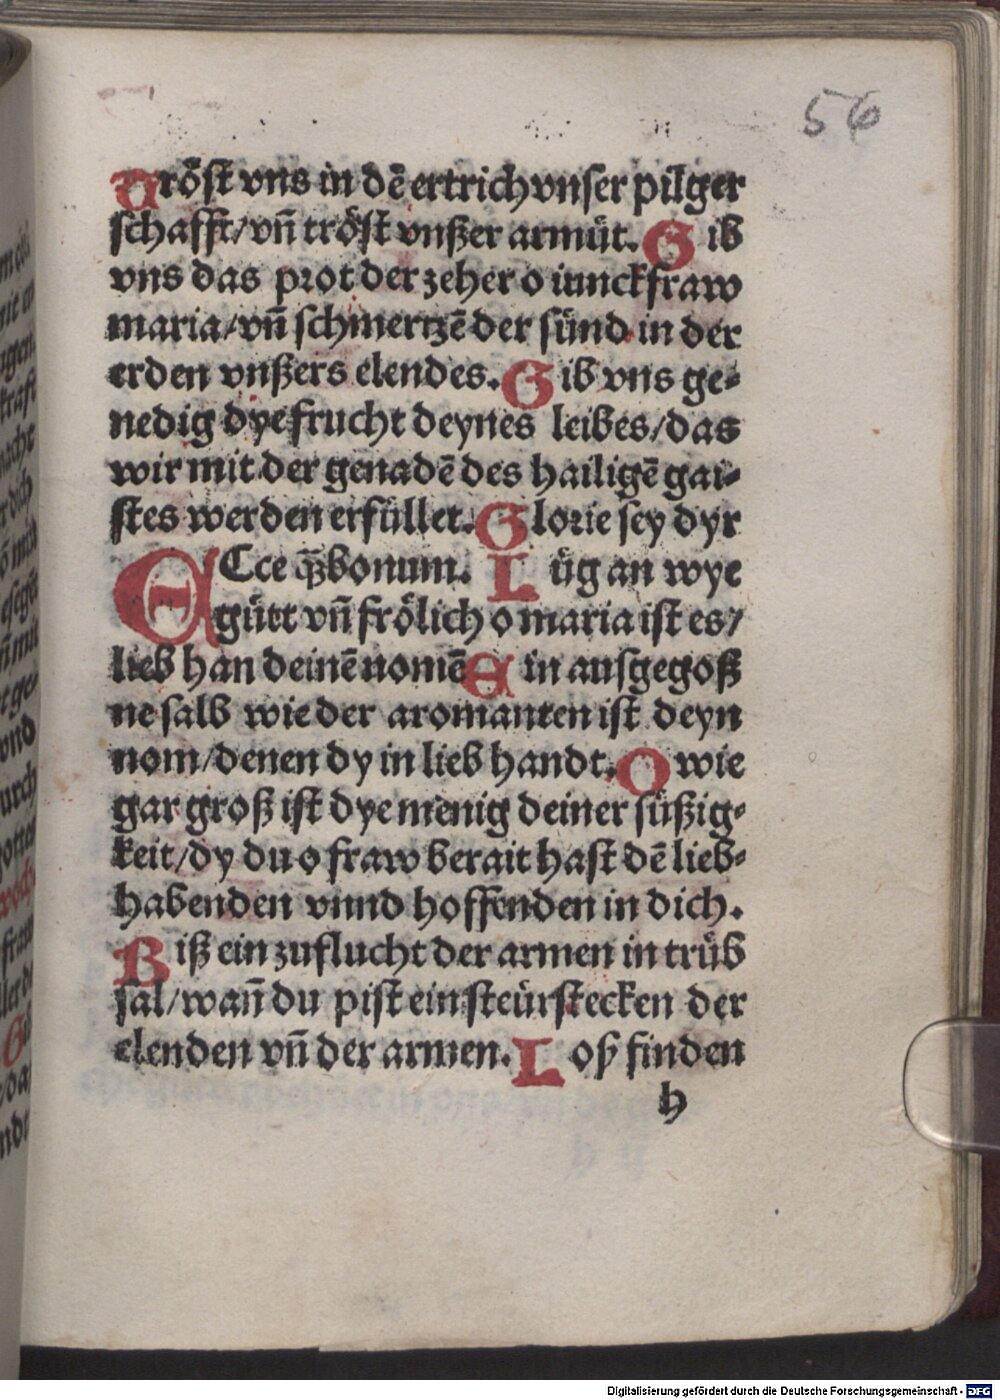 56
Tröst vns in dē ertrich vnser pilger
schafft/vn̄ tröst vnßer armüt. Gib
vns das prot der zeher o iunckfraw
maria/vn̄ schmertzē der sünd in der
erden vnßers elendes. Gib vns ge⸗
nedig dye frucht deynes leibes/das
wir mit der genadē des hailigē gai⸗
stes werden erfüllet. Glorie sey dyr
ECce bonum. Lüg an wye
gütt vn̄ frölich o maria ist es/
lieb han deinē nomē Ein ausgegoß
ne salb wie der aromanten ist deyn
nom/denen dy in lieb handt. O wie
gar groß ist dye menig deiner süßig⸗
keit/dy du o fraw berait hast dē lieb⸗
habenden vnnd hoffenden in dich.
Biß ein zuflucht der armen in trüb
sal/wan̄ du pist ein steürstecken der
elenden vn̄ der armen. Loß finden
h
Digitalisierung gefördert durch die Deutsche Forschungsgemeinschaft - DFG